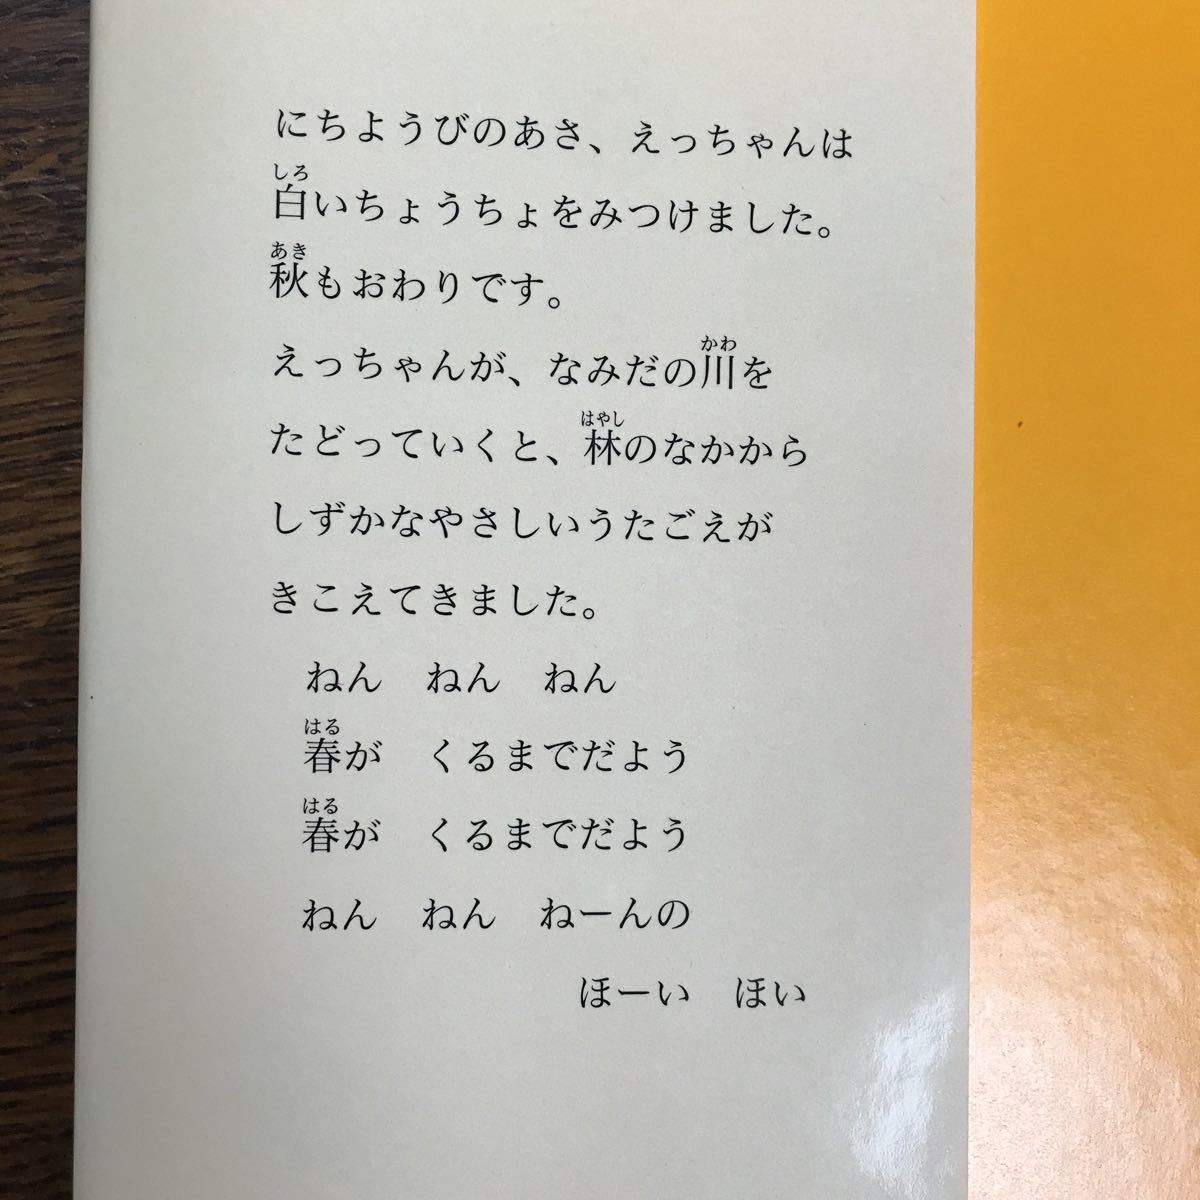 にちようびのあさ、えっちゃんは
白いちょうちょをみつけました。
秋もおわりです。
えっちゃんが、なみだの川を
たどっていくと、林のなかから
しずかなやさしいうたごえが
きこえてきました。
ねん　ねん　ねん
春が　くるまでだよう
春が　くるまでだよう
ねん　ねん　ねーんの
ほーい　ほい